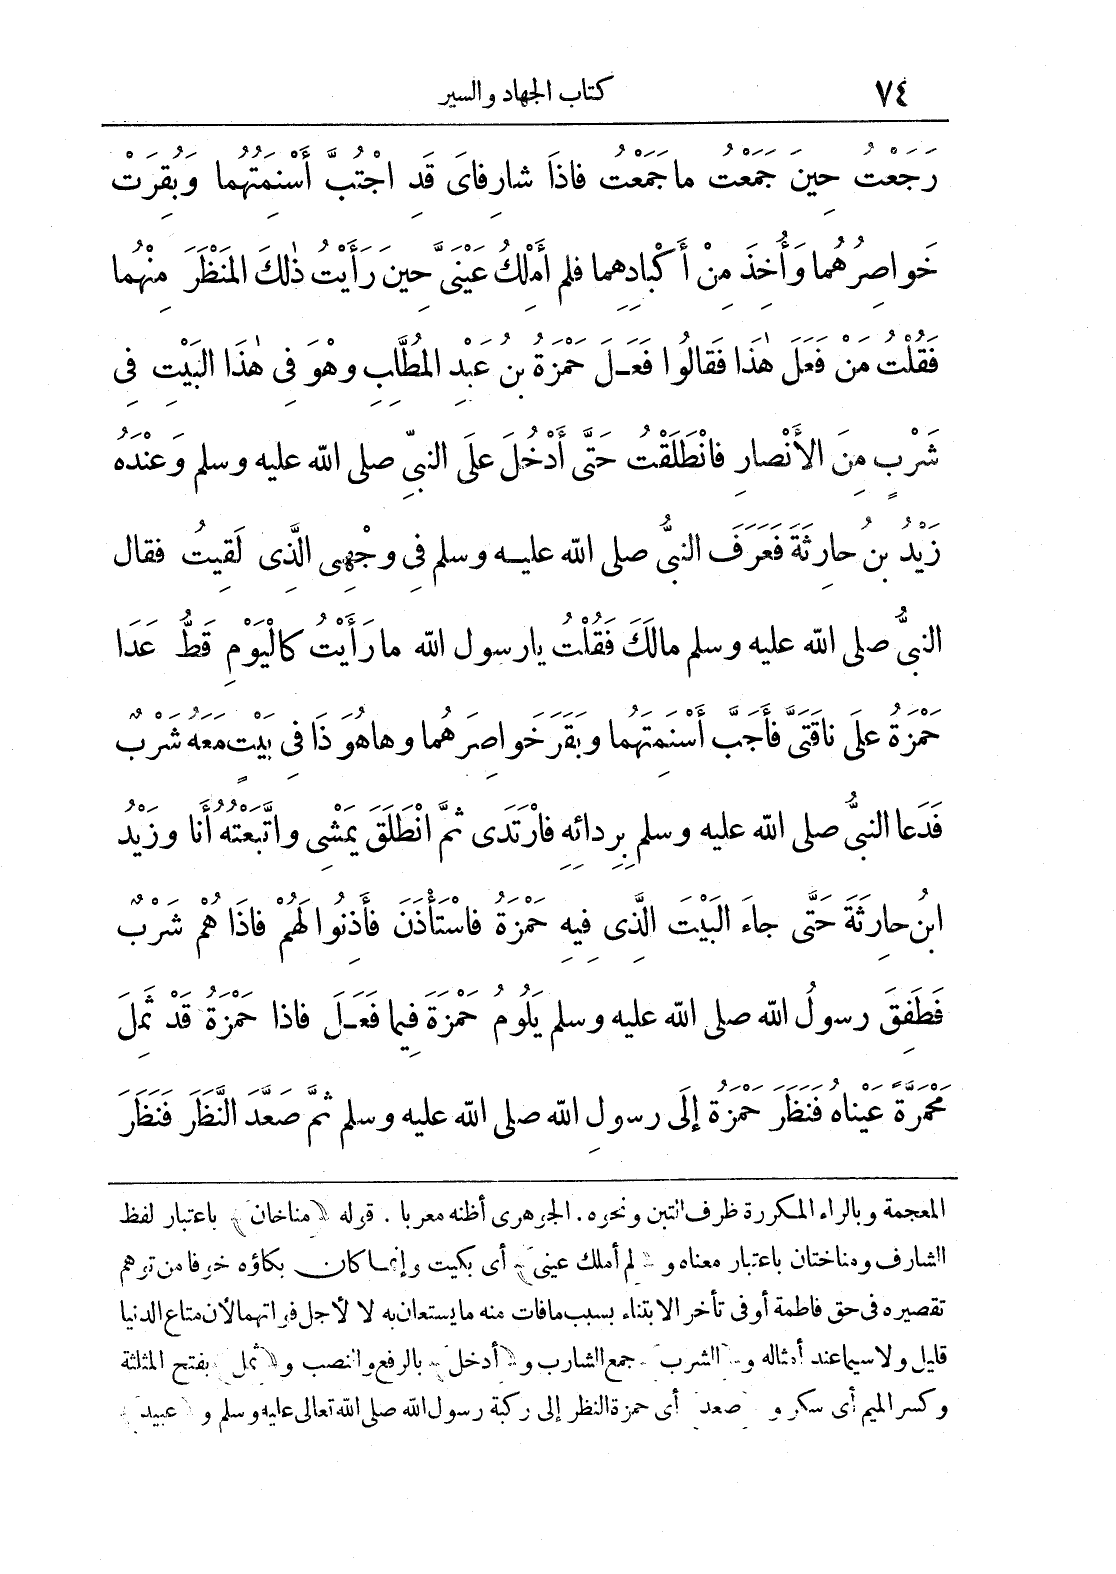 ٧٤ كتاب الجهاد والسير
رَجَعْتُ حِينَ جَمَعْتُ ما جَمَعْتُ فاذَا شارِفاىَ قَدِ اجْتُبَّ أَسْنِمَتُهُما وَبُقِرَتْ
خَواصِرُهُما وَأُخِذَ مِنْ أَكْبادِهِما فلم أَمْلِكْ عَيْنَىَّ حِينَ رَأَيْتُ ذٰلِكَ المَنْظَرَ مِنْهُما
فَقُلْتُ مَنْ فَعَلَ هٰذَا فَقالُوا فَعَلَ حَمْزَةُ بنُ عَبْدِ المُطَّلِبِ وهْوَ فِى هٰذَا البَيْتِ فِى
شَرْبٍ مِنَ الأَنْصارِ فانْطَلَقْتُ حَتَّى أَدْخُلَ علَى النبىِّ صلى الله عليه وسلم وَعِنْدَهُ
زَيْدُ بنُ حارِثَةَ فَعَرَفَ النبىُّ صلى الله عليه وسلم فِى وجْهِى الَّذِى لَقِيتُ فقال
النبىُّ صلى الله عليه وسلم مالَكَ فَقُلْتُ يارسول الله ما رَأَيْتُ كالْيَوْمِ قَطُّ عَدَا
حَمْزَةُ علَى ناقَتَىَّ فأَجَبَّ أَسْنِمَتَهُما وبَقَرَ خَواصِرَهُما وهاهُوَ ذَا فِى بَيْتٍ مَعَهُ شَرْبٌ
فَدَعا النبىُّ صلى الله عليه وسلم بِرِدائِهِ فارْتَدَى ثمَّ انْطَلَقَ يَمْشِى واتَّبَعْتُهُ أَنا وزَيْدُ
ابنُ حارِثَةَ حَتَّى جاءَ البَيْتَ الَّذِى فِيهِ حَمْزَةُ فاسْتَأْذَنَ فأَذِنُوا لَهُمْ فاذَا هُمْ شَرْبٌ
فَطَفِقَ رسولُ الله صلى الله عليه وسلم يَلُومُ حَمْزَةَ فِيما فَعَلَ فاذا حَمْزَةُ قَدْ ثَمِلَ
مُحْمَرَّةً عَيْناهُ فَنَظَرَ حَمْزَةُ إلَى رسولِ الله صلى الله عليه وسلم ثمَّ صَعَّدَ النَّظَرَ فَنَظَرَ
المعجمة وبالراء المكررة ظرف التبن ونحوه. الجوهرى أظنه معربا. قوله ﴿مناخان﴾ باعتبار لفظ
الشارف ومناختان باعتبار معناه و﴿لم أملك عينى﴾ أى بكيت وإنما كان بكاؤه خوفا من توهم
تقصيره فى حق فاطمة أو فى تأخر الابتناء بسبب مافات منه ما يستعان به لا لأجل فواتهما لأن متاع الدنيا
قليل ولا سيما عند أمثاله و﴿الشرب﴾ جمع الشارب و﴿أدخل﴾ بالرفع والنصب و﴿ثمل﴾ بفتح المثلثة
وكسر الميم أى سكر و﴿صعد﴾ أى حمزة النظر إلى ركبة رسول الله صلى الله تعالى عليه وسلم و﴿عبيد﴾